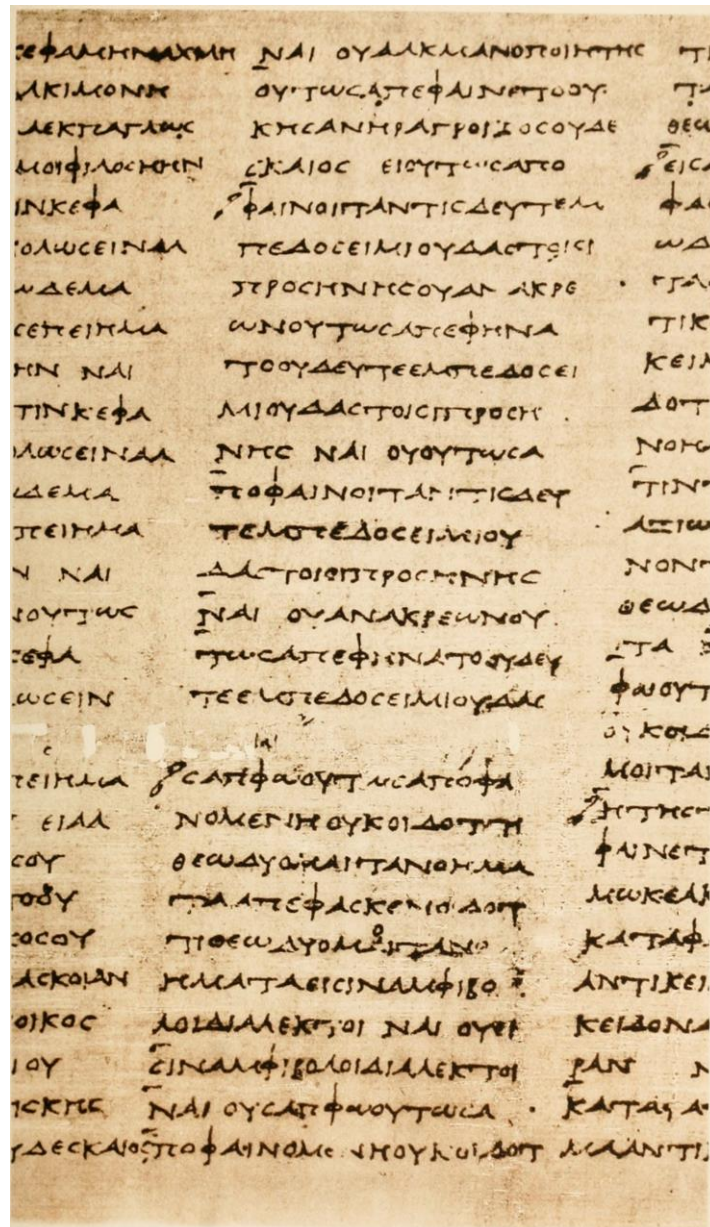 ΙΝΚΕΦΑ
ΟΛΩϹΕΙΝΑΛ
ΩΔΕΜΑ
ϹΕΠΕΙΗΜΑ
ΗΝ ΝΑΙ
ΤΙΝΚΕΦΑ
ΛΩϹΕΙΝΑΛ
ΩΔΕΜΑ
ΠΕΙΗΜΑ
Ν ΝΑΙ
ΟΥΤΩϹ
ΕΦΑ
ΩϹΕΙΝ
ΠΕΙΗΜΑ
ΕΙΑΛ
ϹΟΥ
ΤΟΟΥ
ΟϹΟΥ
ΑϹΚΟΙΑΝ
ΟΙΚΟϹ
ΟΥ
ΗϹΚΗϹ
ΥΔΕϹΚΑΙΟϹ
ΝΑΙ ΟΥΑΛΚΜΑΝΟΠΟΙΗΤΗϹ
ΟΥΤΩϹΑΠΕΦΑΙΝΕΤΟΟΥ
ΚΗϹΑΝΗΡΑΓΡΟΙΚΟϹΟΥΔΕ
ϹΚΑΙΟϹ ΕΙΟΥΤΩϹΑΠΟ
ΦΑΙΝΟΙΤΑΝΤΙϹΔΕΥΤΕΜ
ΠΕΔΟϹΕΙΜΙΟΥΔΑϹΤΟΙϹΙ
ΠΡΟϹΗΝΗϹΟΥΑΝΑΚΡΕ
ΩΝΟΥΤΩϹΑΠΕΦΗΝΑ
ΤΟΟΥΔΕΥΤΕΕΜΠΕΔΟϹΕΙ
ΜΙΟΥΔΑϹΤΟΙϹΠΡΟϹΗ
ΝΗϹ ΝΑΙ ΟΥΟΥΤΩϹΑ
ΠΟΦΑΙΝΟΙΤΑΝΤΙϹΔΕΥ
ΤΕΜΠΕΔΟϹΕΙΜΙΟΥ
ΔΑϹΤΟΙϹΠΡΟϹΗΝΗϹ
ΝΑΙ ΟΥΑΝΑΚΡΕΩΝΟΥ
ΤΩϹΑΠΕΦΗΝΑΤΟΟΥΔΕΥ
ΤΕΕΜΠΕΔΟϹΕΙΜΙΟΥΔΑϹ
ϹΑΠΦΩΟΥΤΩϹΑΠΟΦΑ
ΝΟΜΕΝΗΟΥΚΟΙΔΟΤΤΙ
ΘΕΩΔΥΟΜΑΙΤΑΝΟΗΜΑ
ΤΑΑΠΕΦΑϹΚΕΝΟΙΔΟΤ
ΤΙΘΕΩΔΥΟΜΟΙΤΑΝΟ
ΗΜΑΤΑΕΙϹΙΝΑΜΦΙΒΟ
ΛΟΙΔΙΑΛΕΚΤΟΙ ΝΑΙ ΟΥΕΙ
ϹΙΝΑΜΦΙΒΟΛΟΙΔΙΑΛΕΚΤΟΙ
ΝΑΙ ΟΥϹΑΠΦΩΟΥΤΩϹΑ
ΠΟΦΑΙΝΟΜΕΝΗΟΥΚΟΙΔΟΤ
ΤΙ
ΘΕΩ
ΕΙϹΑ
ΦΑ
ΩΔ
ΤΑ
ΤΙΚ
ΚΕΙΜ
ΔΟΤ
ΝΟΗ
ΤΙΝ
ΑΞΙΩ
ΝΟΝΤ
ΘΕΩΔ
ΤΑ
ΦΩΟΥΤ
ΟΥΚΟΙΔ
ΜΟΙΤΑΝ
ΗΤΗϹ
ΦΑΙΝΕΤ
ΜΩΚΕΑΚ
ΚΑΤΑΦΑ
ΑΝΤΙΚΕΙ
ΚΕΙΔΟΝΑ
ΡΑΝ Ν
ΚΑΤΑΦΑ
ΜΑΑΝΤΙ